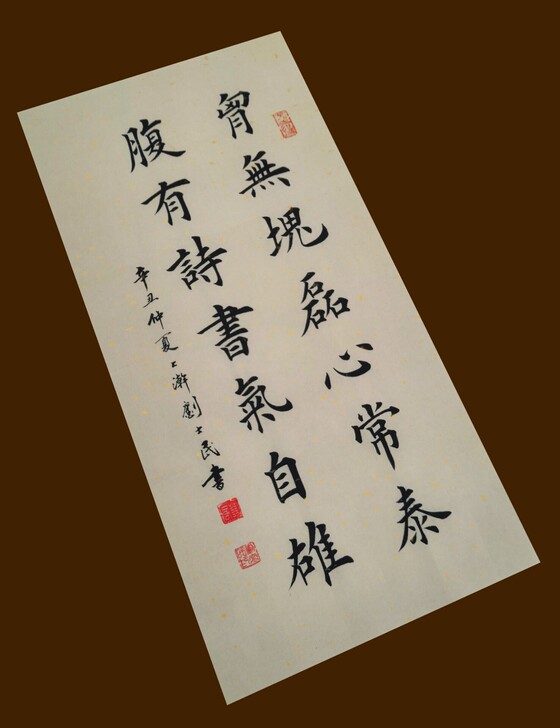 胷無塊磊心常泰
腹有詩書氣自雄
辛丑仲夏上澣劉士民書